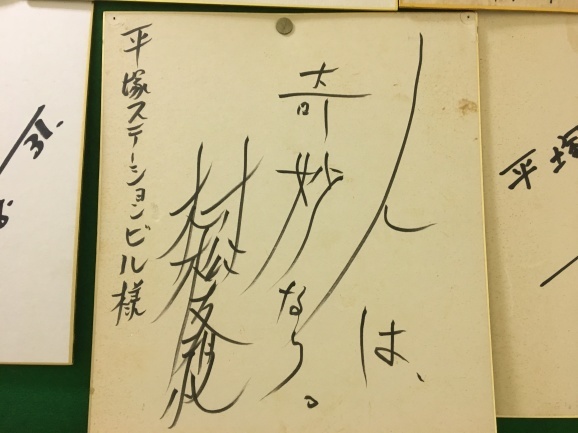 平塚
人は、
奇妙なり。
村松友視
平塚ステーションビル様
31.